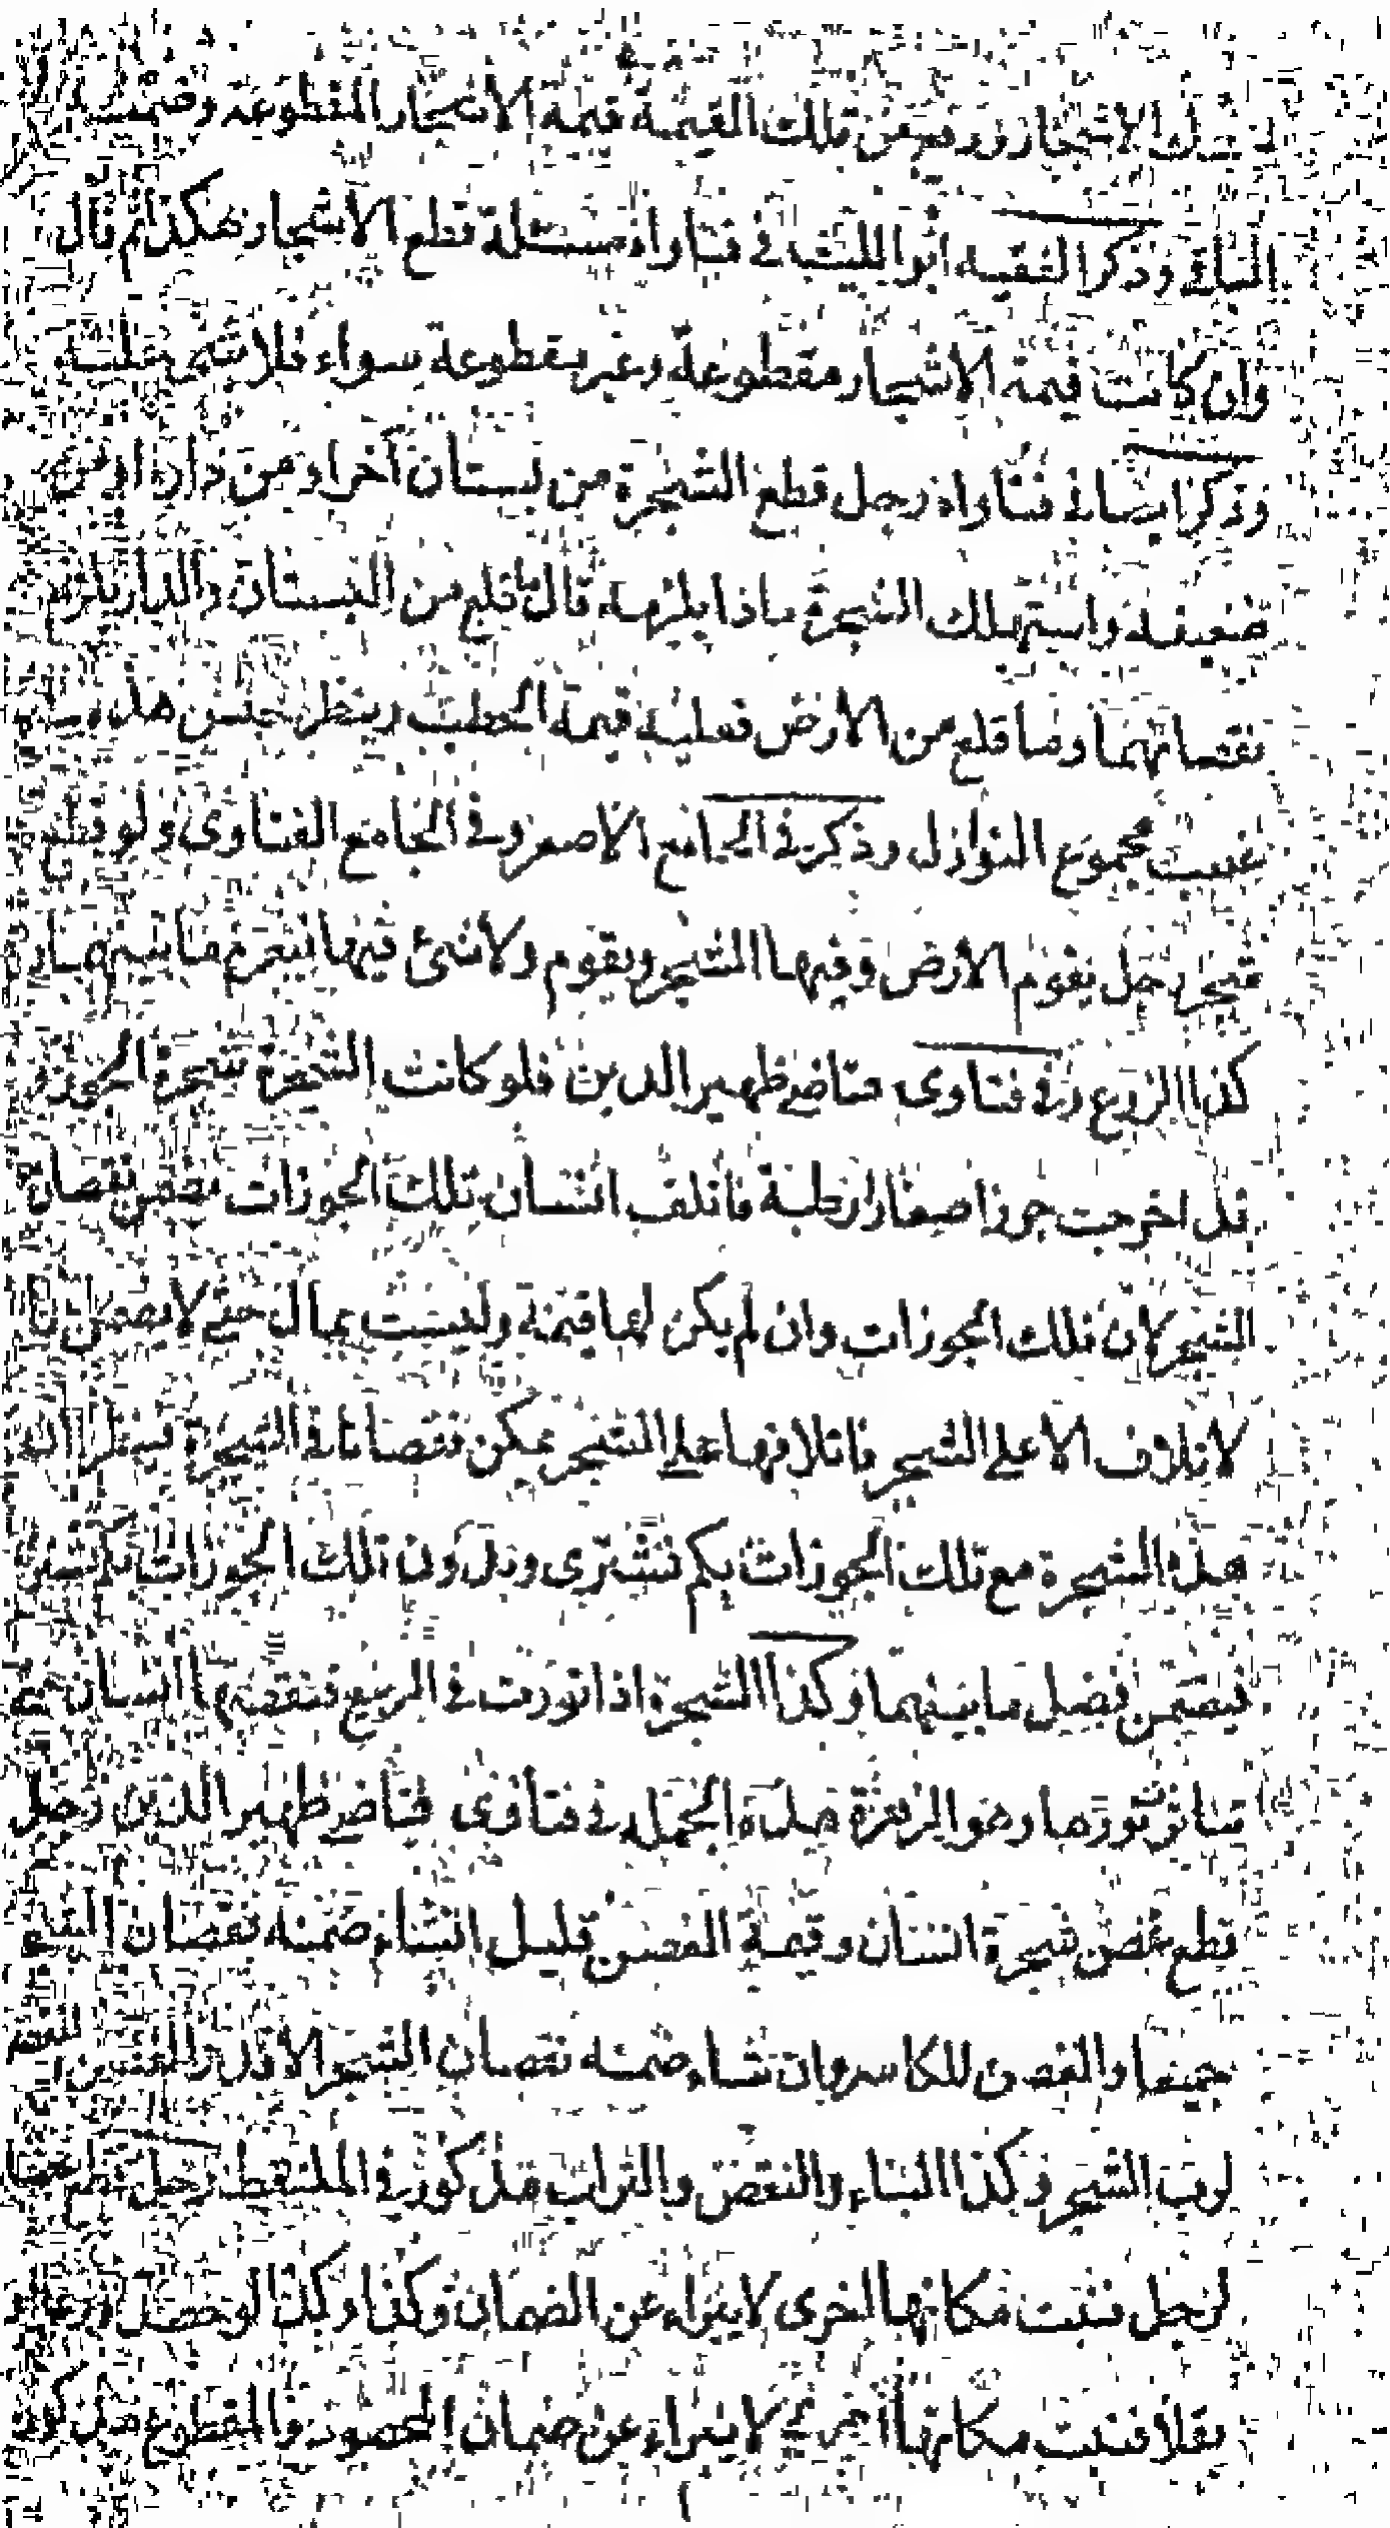 الاشجار ورفع عن تلك القيمة قيمة الاشجار المقطوعة وضمنه
الباقى وذكر الفقيه ابو الليث فى فتاواه مسئلة قطع الاشجار هكذا ثم قال
وان كانت قيمة الاشجار مقطوعة وغير مقطوعة سواء فلا شئ عليه
وذكر ايضا فى فتاواه رجل قطع الشجرة من بستان آخر او من دار او من
ضيعة واستهلك الشجرة ماذا يلزمه قال ما قلع من البستان والدار يلزم
نقصانهما وما قلع من الارض فعليه قيمة الحطب وينظر جنس هذا
غصب مجموع النوازل وذكر فى الجامع الاصغر وفى الجامع الفتاوى ولو قطع
شجر رجل يقوم الارض وفيها الشجر ويقوم ولا شئ فيها فيغرم ما بينهما
كذا الزرع وفى فتاوى قاضى ظهير الدين فلو كانت الشجرة شجرة الجوز
قد اخرجت جوزا صغارا رطبة فاتلف انسان تلك الجوزات يضمن نقصان
الشجر لان تلك الجوزات وان لم يكن لها قيمة وليست بمال حتى لا يضمن
لاتلاف الا على الشجر فاتلافها على الشجر يمكن نقصانا فى الشجرة فينظر ان
هذا الشجرة مع تلك الجوزات بكم تشترى وبدون تلك الجوزات بكم تشترى
فيضمن فضل ما بينهما وكذا الشجرة اذا نورت فى الربيع فنفضها انسان حتى
تناثر نورها وهو الزهرة هذه الجملة فى فتاوى قاضى ظهير الدين رجل
قطع غصن شجرة انسان وقيمة الغصن قليل ان شاء ضمنه نقصان الشجر
جميعا والغصن للكاسر وان شاء ضمنه نقصان الشجر الا قدر الغصن
لرب الشجر وكذا البناء والنقض والتراب مذكور فى الملتقط رجل قطع
لرجل فنبت مكانها اخرى لا يبراء عن الضمان وكذا وكذا لو حصد
بقلا فنبت مكانها اخرى لا يبراء عن ضمان المحصود والمقطوع مذكور